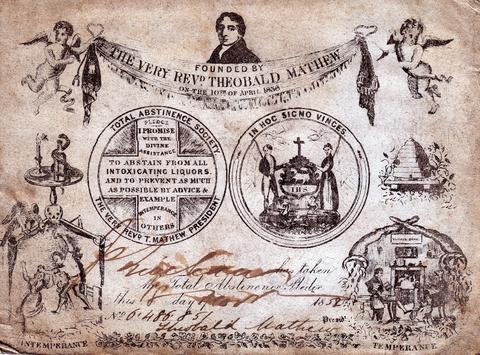 FOUNDED BY
THE VERY REVD. THEOBALD MATHEW
ON THE 10TH OF APRIL 1838
TOTAL ABSTINENCE SOCIETY
PLEDGE
I PROMISE
WITH THE
DIVINE
ASSISTANCE
TO ABSTAIN FROM ALL
INTOXICATING LIQUORS,
AND TO PREVENT AS MUCH
AS POSSIBLE BY ADVICE &
EXAMPLE
INTEMPERANCE
IN
OTHERS
THE VERY REVD. T. MATHEW PRESIDENT
IN HOC SIGNO VINCES
IHS
has taken
the Total Abstinence Pledge
This day of 185
No
Theobald Mathew Presidt.
INTEMPERANCE
TEMPERANCE